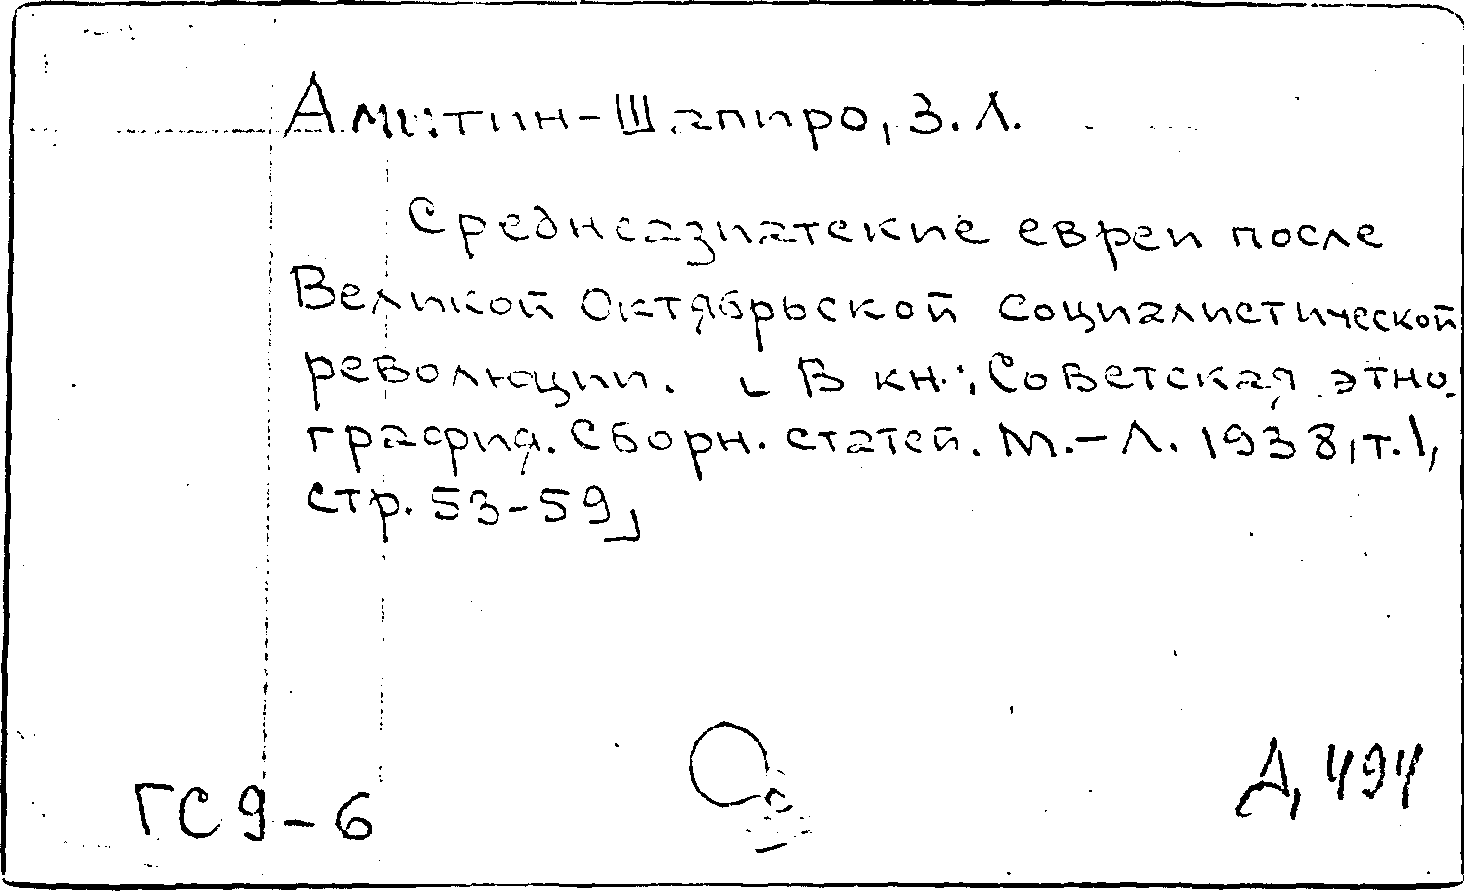 Амитин-Шапиро, З. Л.
Среднеазиатские евреи после
Великой Октябрьской социалистической
революции. [В кн.: Советская этно-
графия. Сборн. статей. М.-Л. 1938, т. 1,
стр. 53-59]
ГС9-6
Д 494